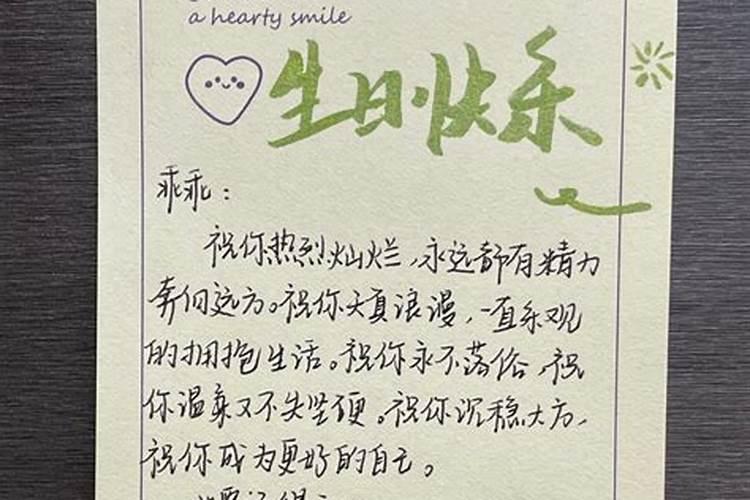 a hearty smile
生日快乐
乖乖：
祝你热烈灿烂，永远都有精力
奔向远方。祝你天真浪漫，一直乐观
的拥抱生活。祝你永不落俗，祝
你温柔又不失坚硬。祝你沉稳大方，
祝你成为更好的自己。